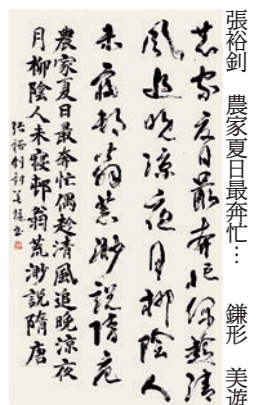 張裕釗　農家夏日最奔忙…　鎌形　美遊
農家夏日最奔忙偶趁清
風追晚涼夜月柳陰人
未寢邨翁荒渺說隋唐
農家夏日最奔忙偶趁清風追晚涼夜
月柳陰人未寢邨翁荒渺說隋唐
張裕釗詩美遊書